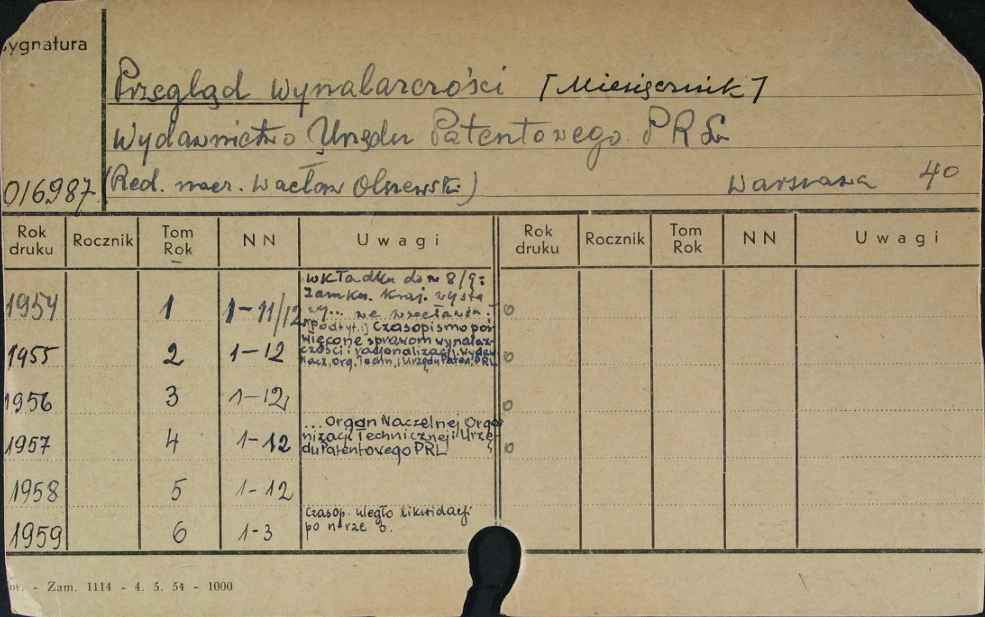 Sygnatura
Przegląd wynalazczości [Miesięcznik]
Wydawnictwo Urzędu Patentowego PRL
016987 (Red. nacz. Wacław Olszewski) Warszawa 40
Rok druku Rocznik Tom Rok NN Uwagi Rok druku Rocznik Tom Rok NN Uwagi
wkładka do nr 8/9:
1954 1 1-11/12 Kraj. wysta
we Wrocławiu.
podtyt.: Czasopismo poś
1955 2 1-12 więcone sprawom wynalaz-
czości i racjonalizacji. Wydaw
Nacz. Org. Techn. i Urzędu Paten. PRL
1956 3 1-12
...Organ Naczelnej Orga
1957 4 1-12 nizacji Technicznej i Urzę-
du Patentowego PRL
1958 5 1-12
Czasop. uległo likwidacji
1959 6 1-3 po n-rze
Zam. 1114 - 4. 5. 54 - 1000